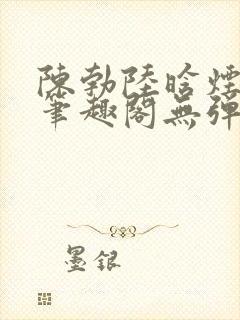 陳勃陸晗煙
筆趣閣無彈
墨銀